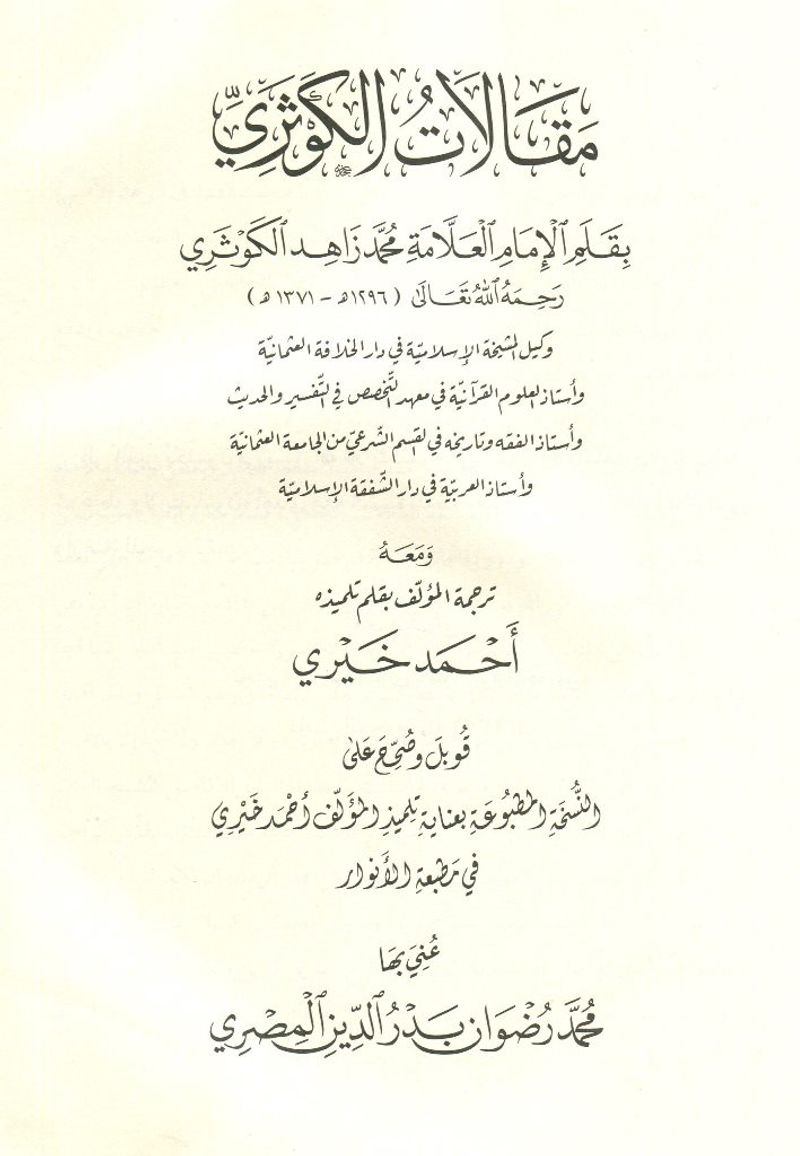 مَقَالَاتُ الكَوْثَرِيِّ
بِقَلَمِ الْإِمَامِ الْعَلَّامَةِ مُحَمَّد زَاهِد الْكَوْثَرِي
رَحِمَهُ اللهُ تَعَالَىٰ ( ١٢٩٦هـ - ١٣٧١هـ )
وكيل المشيخة الإسلاميّة في دار الخلافة العثمانيّة
وأستاذ العلوم القرآنيّة في معهد التّخصص في التّفسير والحديث
وأستاذ الفقه وتاريخه في القسم الشّرعيّ من الجامعة العثمانيّة
وأستاذ العربيّة في دار الشّفقة الإسلاميّة
وَمَعَهُ
ترجمة المؤلّف بقلم تلميذه
أَحْمَد خَيْرِي
قُوبِلَ وصُحِّحَ عَلىٰ
النُّسْخَةِ المَطبُوعَةِ بعنايةِ تِلميذِ المؤَلّفِ أَحْمَد خَيْرِي
في مَطبعةِ الأَنوار
عُنِيَ بهَا
مُحَمَّد رُضْوَان بَدْرُ الدِّينِ الْمِصْرِي